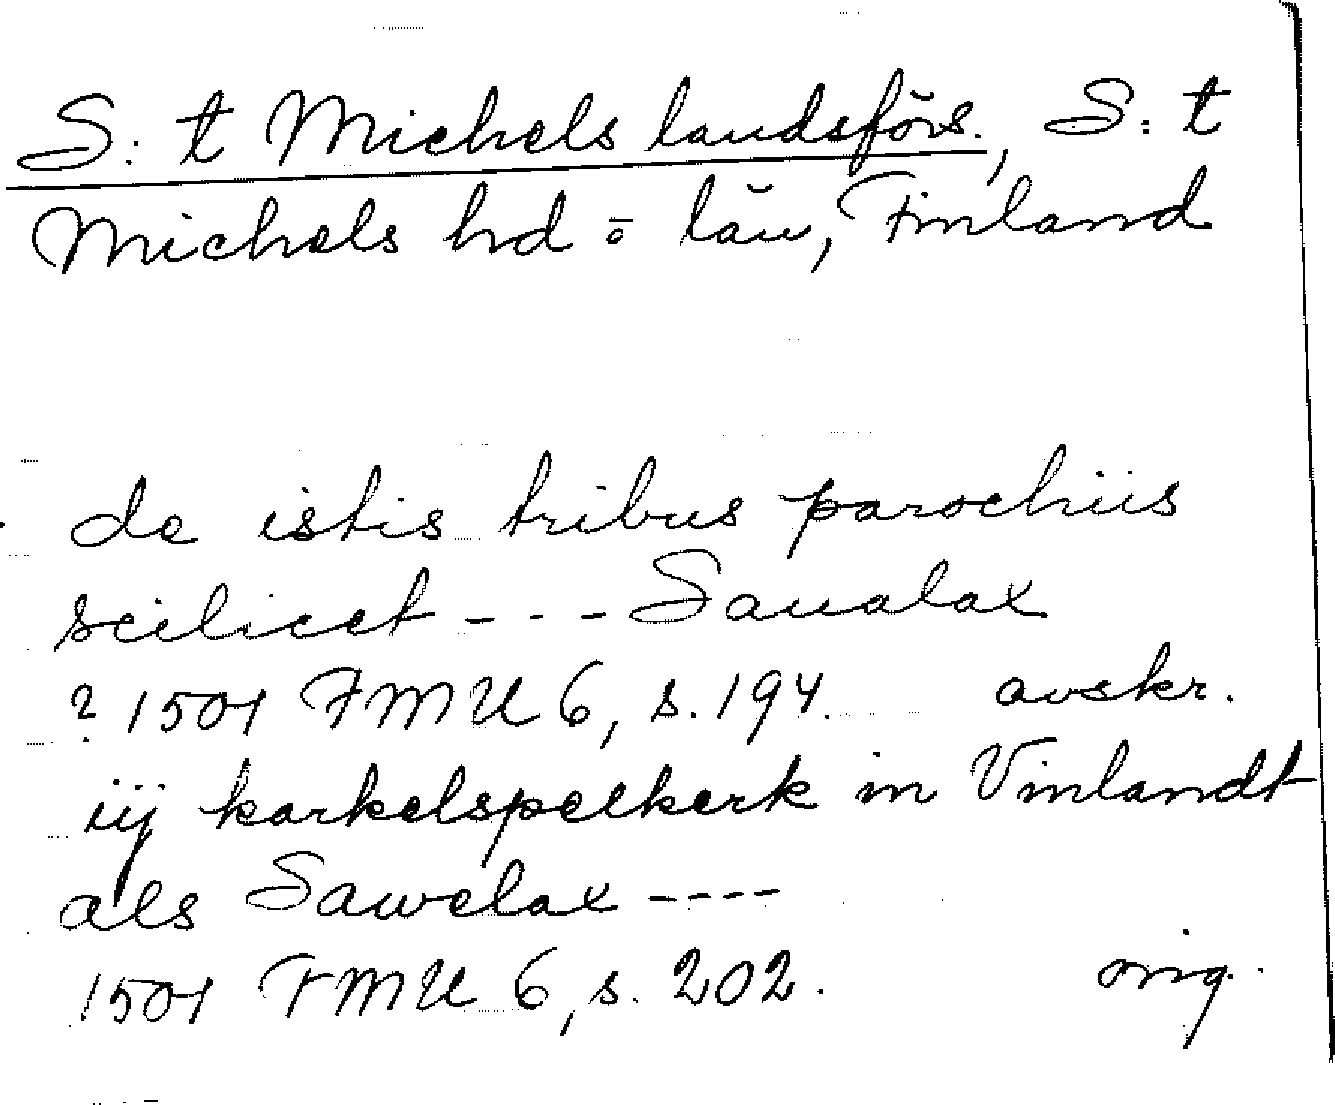 S:t Michels landsförs., S:t
Michels hd o län, Finland
de istis tribus parochiis
scilicet --- Saualax
? 1504 FMU 6, s. 194. avskr.
iij karkelspelkerk in Vinlandt
als Sawelax ----
1504 FMU 6, s. 202. orig.